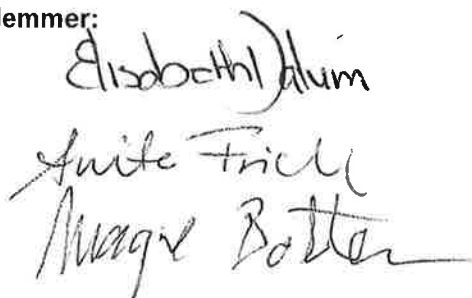 lemmer:
Elisabeth Dalum
Anite Frich
Botten